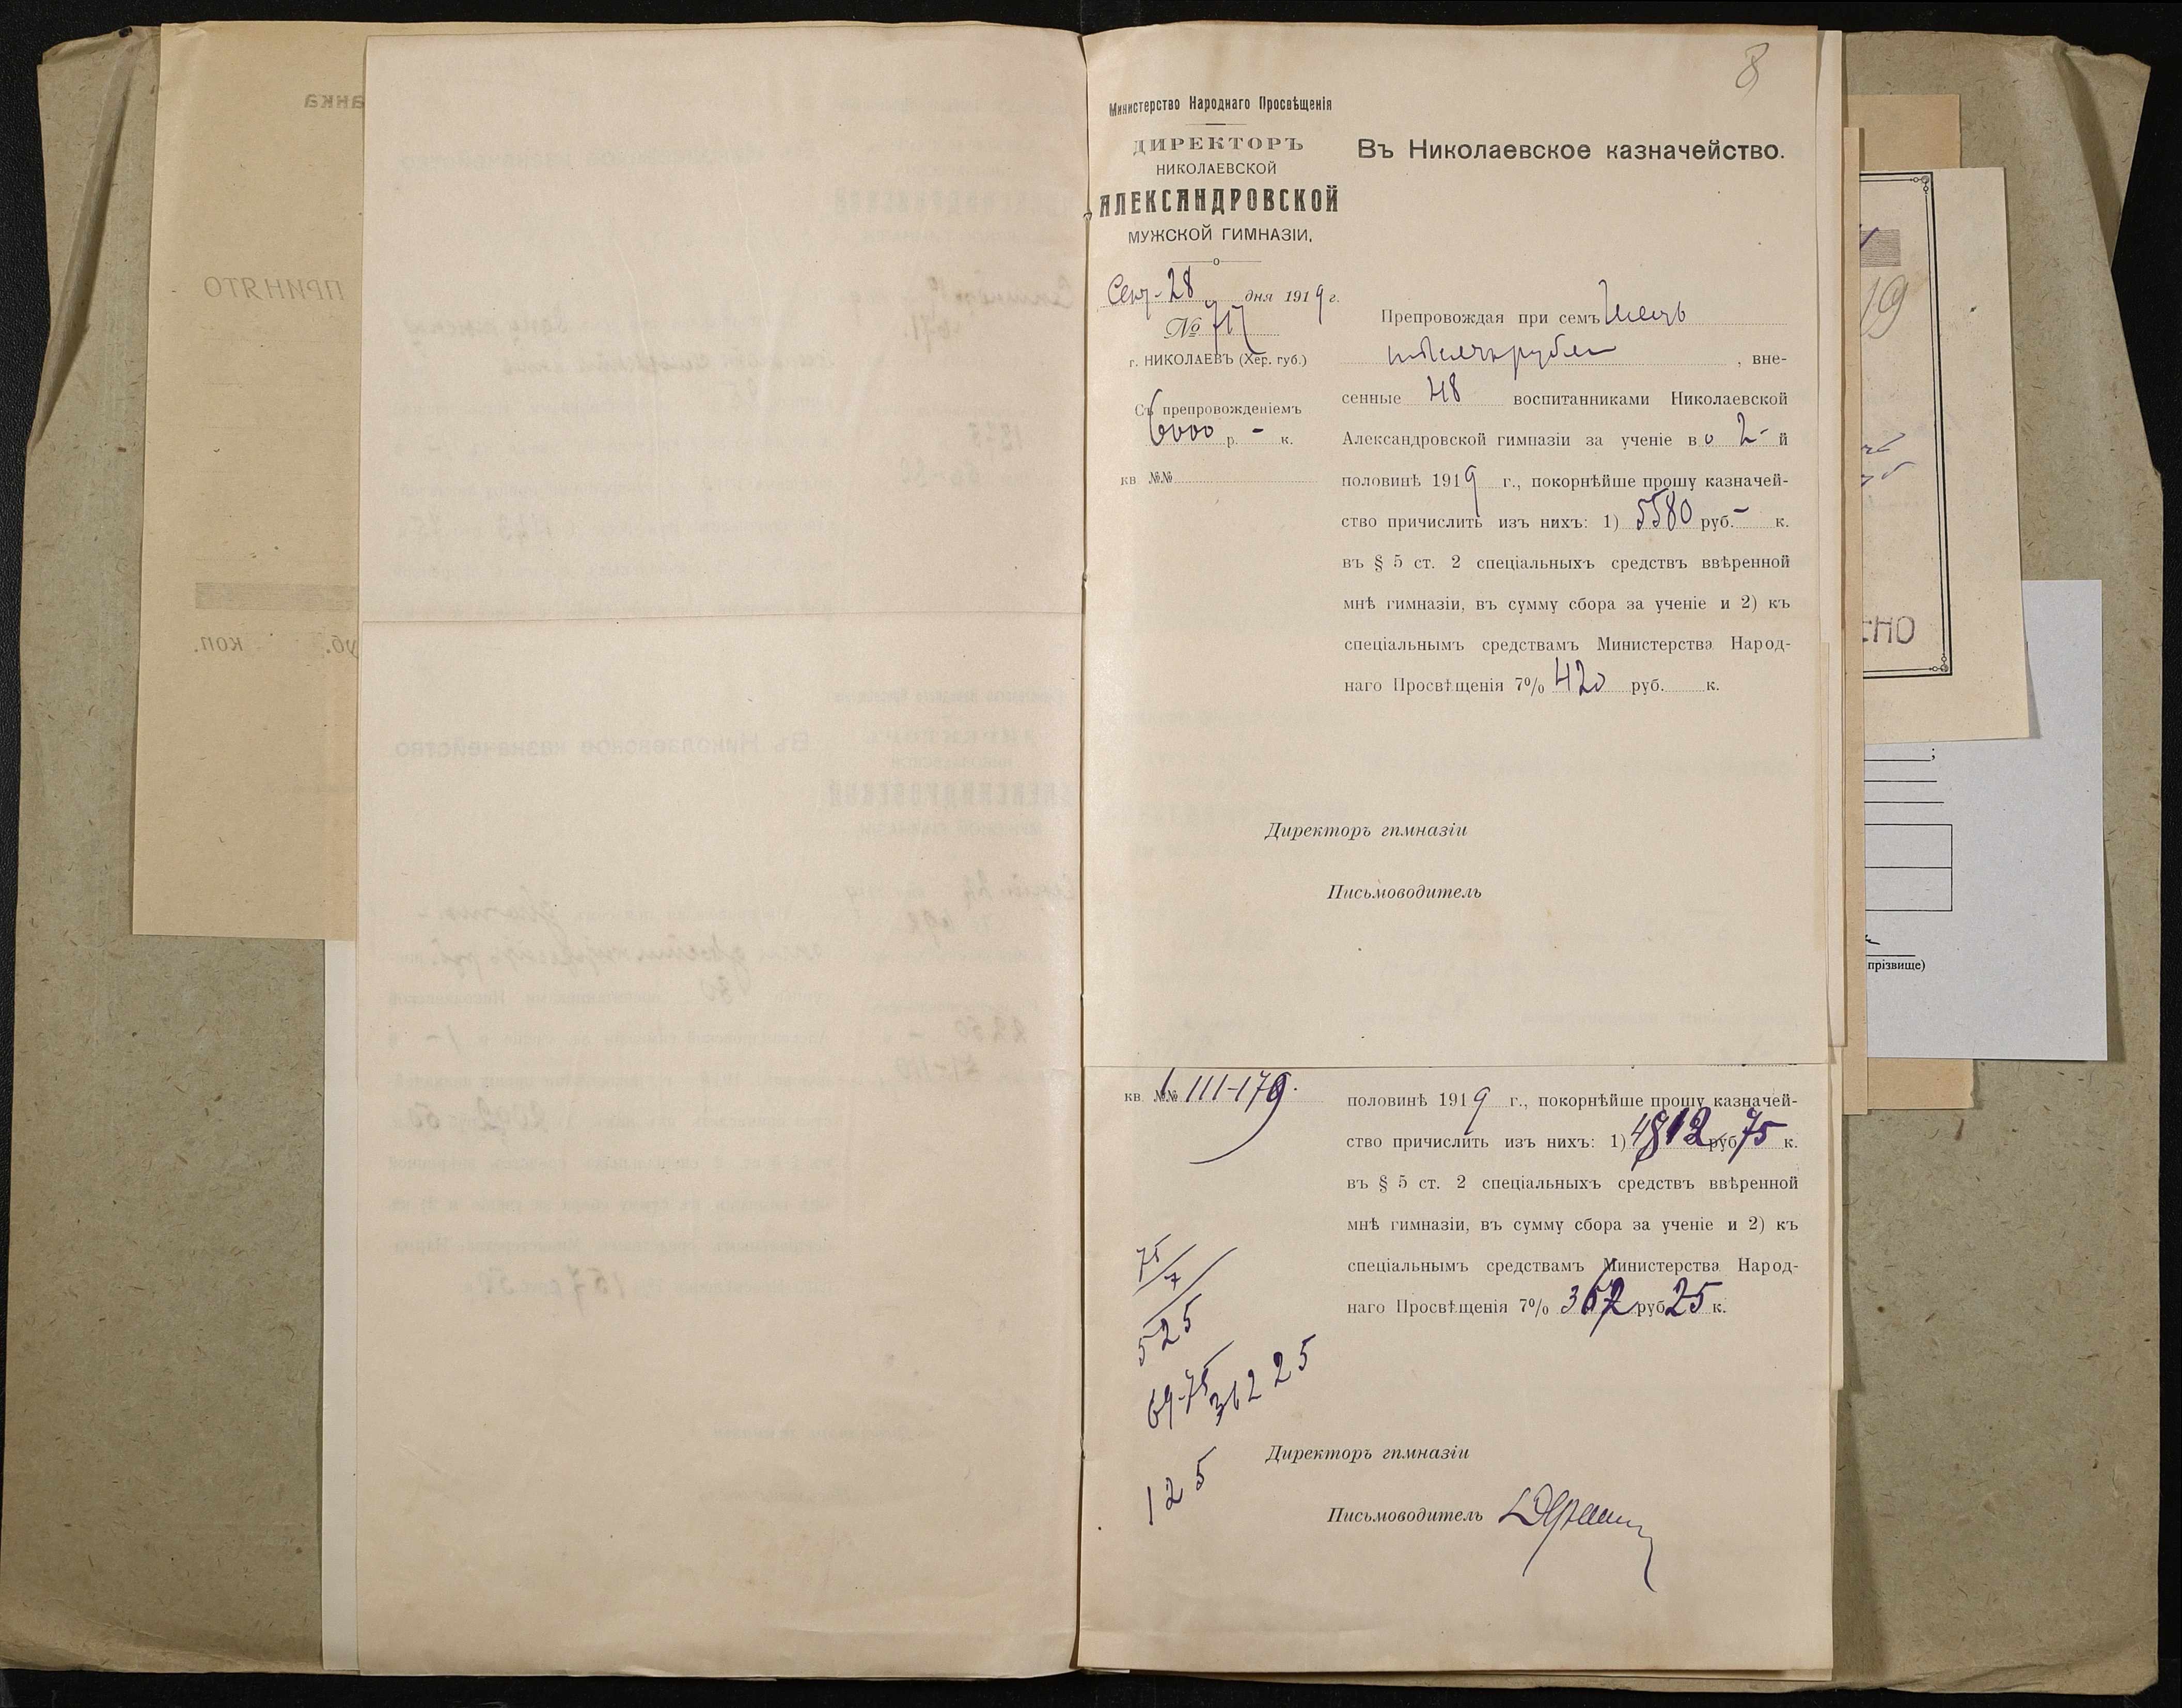 8
Министерство Народнаго Просвѣщенія
ДИРЕКТОРЪ
НИКОЛАЕВСКОЙ
АЛЕКСАНДРОВСКОЙ
МУЖСКОЙ ГИМНАЗІИ,
Сент. 28 дня 1919 г.
№ 717
г. НИКОЛАЕВЪ (Хер. губ.)
Съ препровожденіемъ
6000 р. - к.
кв №№
Въ Николаевское казначейство.
Препровождая при семъ шесть
тысячъ рублей, вне-
сенные 48 воспитанниками Николаевской
Александровской гимназіи за ученіе во 2-й
половинѣ 1919 г., покорнѣйше прошу казначей-
ство причислить изъ нихъ: 1) 5580 руб. - к.
въ § 5 ст. 2 спеціальныхъ средствъ ввѣренной
мнѣ гимназіи, въ сумму сбора за ученіе и 2) къ
спеціальнымъ средствамъ Министерства Народ-
наго Просвѣщенія 7% 420 руб. к.
Директоръ гимназіи
Письмоводитель
кв. №№ 111-179.
половинѣ 1919 г., покорнѣйше прошу казначей-
ство причислить изъ нихъ: 1) 4812 руб 75 к.
въ § 5 ст. 2 спеціальныхъ средствъ ввѣренной
мнѣ гимназіи, въ сумму сбора за ученіе и 2) къ
спеціальнымъ средствамъ Министерства Народ-
наго Просвѣщенія 7% 362 руб 25 к.
75
7
525
69-75
362 25
125
Директоръ гимназіи
Письмоводитель
19
НО
прізвище)
анка
ПРИНЯТО
уб. коп.